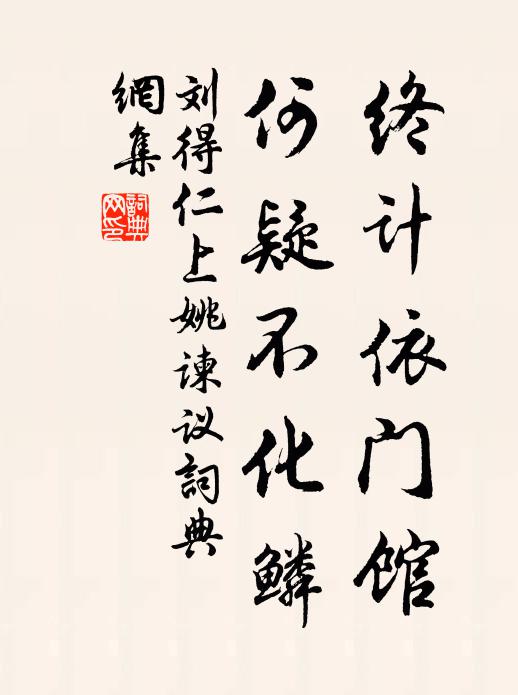 终计依门馆
何疑不化鳞
刘得仁上姚谏议詞典
網集
詞典
网印